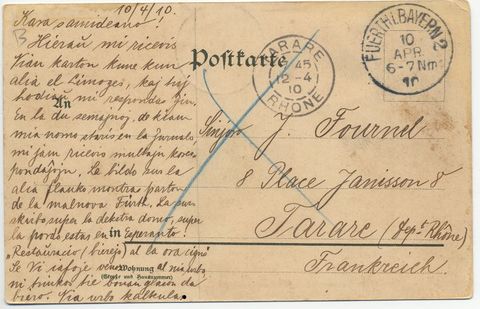 10/4/10.
Kara samideano!
Hieraŭ mi ricevis
Vian karton kune kun
alia el Limoges, kaj tuj
hodiaŭ mi respondas ĝin.
En la du semajnoj, de kiam
mia nomo staris en la Jurnalo,
mi jam ricevis multajn kores-
pondaĵojn. La bildo sur la
alia flanko montras parton
de la malnova Fürth. La sur-
skribo super la dekstra domo, super
la pordo estas en Esperanto!
"Restauracio (bierejo) al la ora cigno"
Se Vi iafoje venos al nia urbo,
ni trinkos tie bonan glason da
biero. Via urbo
Postkarte
An
in
Wohnung
(Straße und Hausnummer)
TARARE
45
12-4
10
RHÔNE
FUERTH I. BAYERN 2
10
APR.
6-7 Nm
10
Sinjoro J. Fournel
8 Place Janisson 8
Tarare (Dept Rhône)
Frankreich.